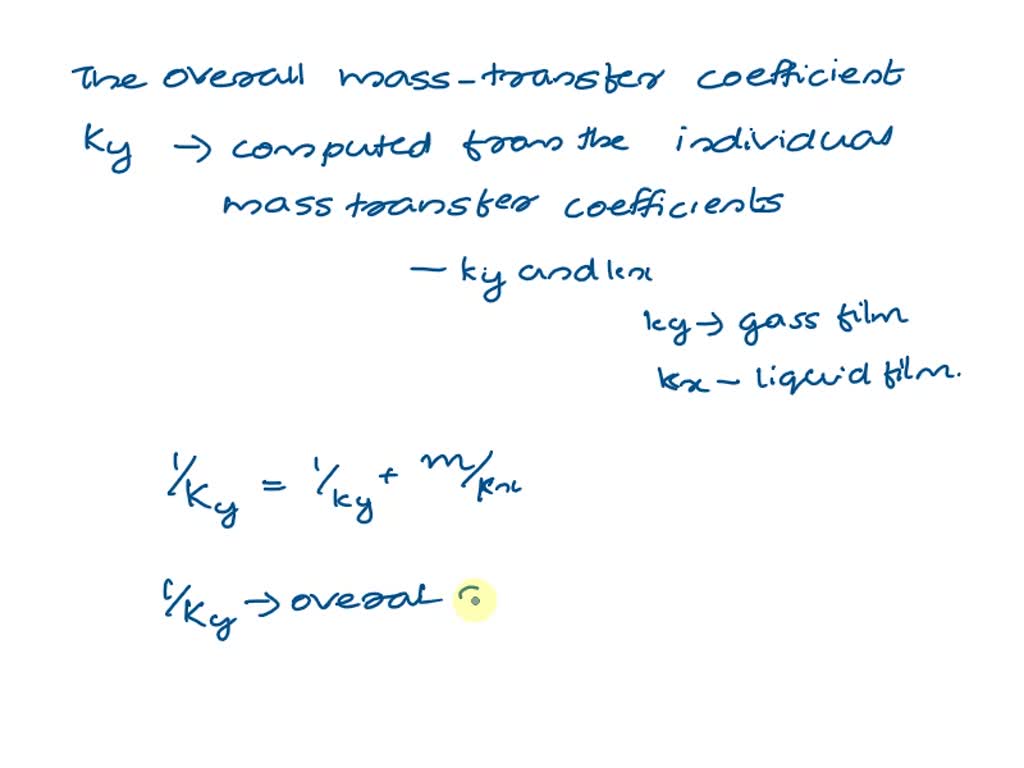 The overall mass-transfer coefficient
Ky → computed from the individual
mass transfer coefficients
– ky and kx
ky → gass film
kx – liquid film.
1/Ky = 1/ky + m/kx
1/Ky → overal